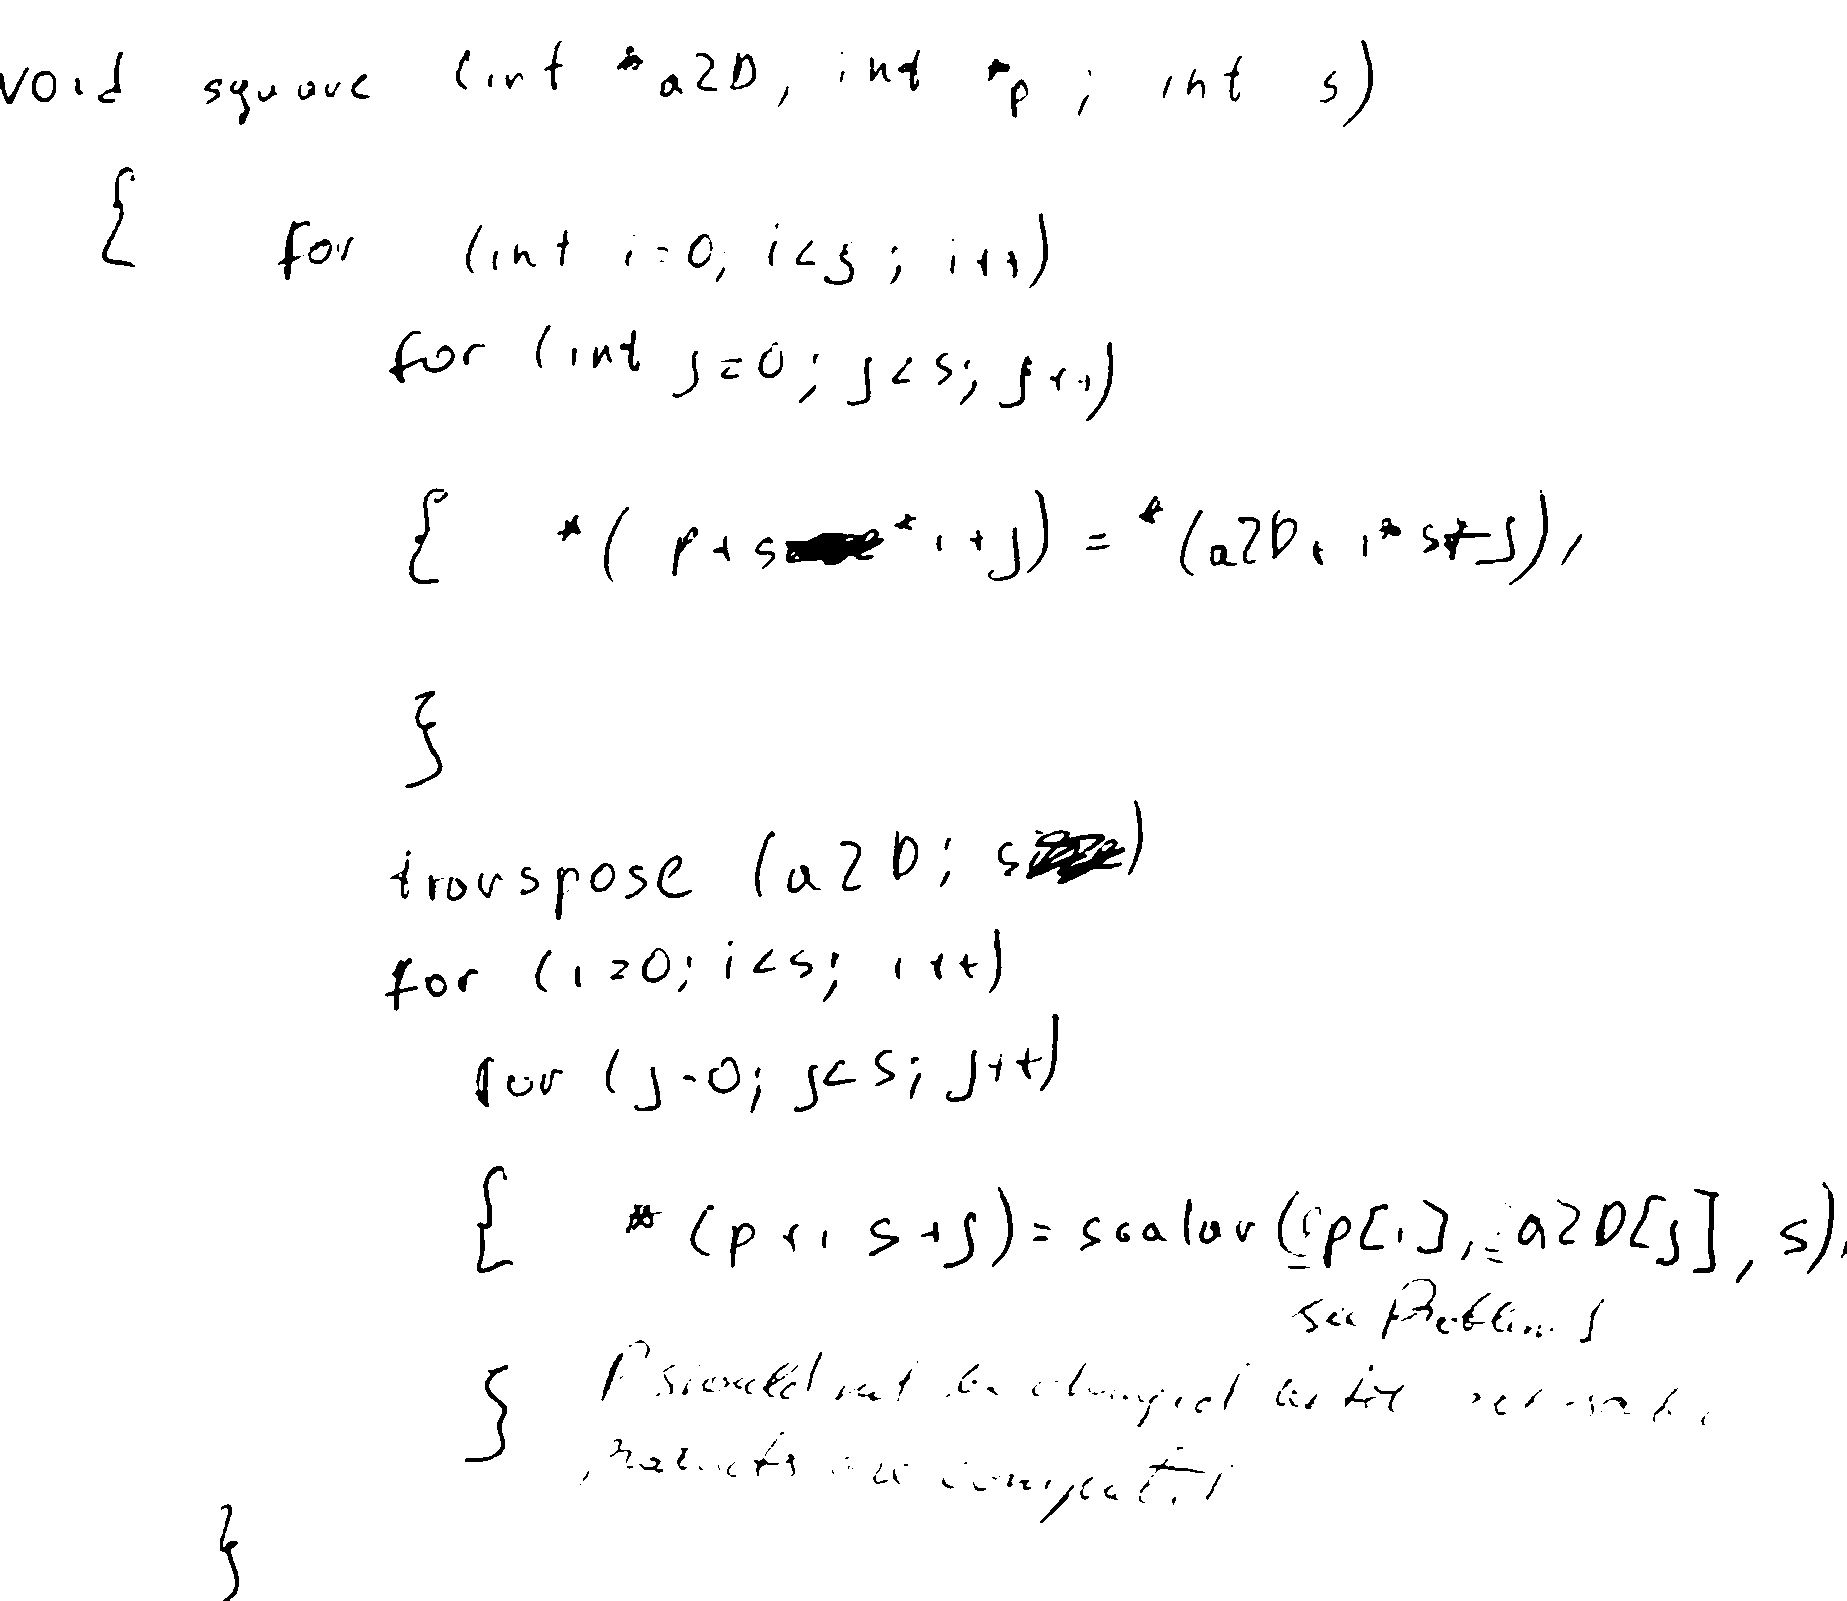 void square (int *a2D, int *p ; int s)
{ for (int i=0, i<s ; i++)
for (int j=0; j<s; j++)
{ *( p+s*i+j) = *(a2D+ i*s+j),
}
transpose (a2D; s)
for (i=0; i<s; i++)
for (j=0; j<s; j++)
{ *(p+i s+j)= scalar(p[i], a2D[j], s),
see Problem 1
} P should not be changed
products are computed
}